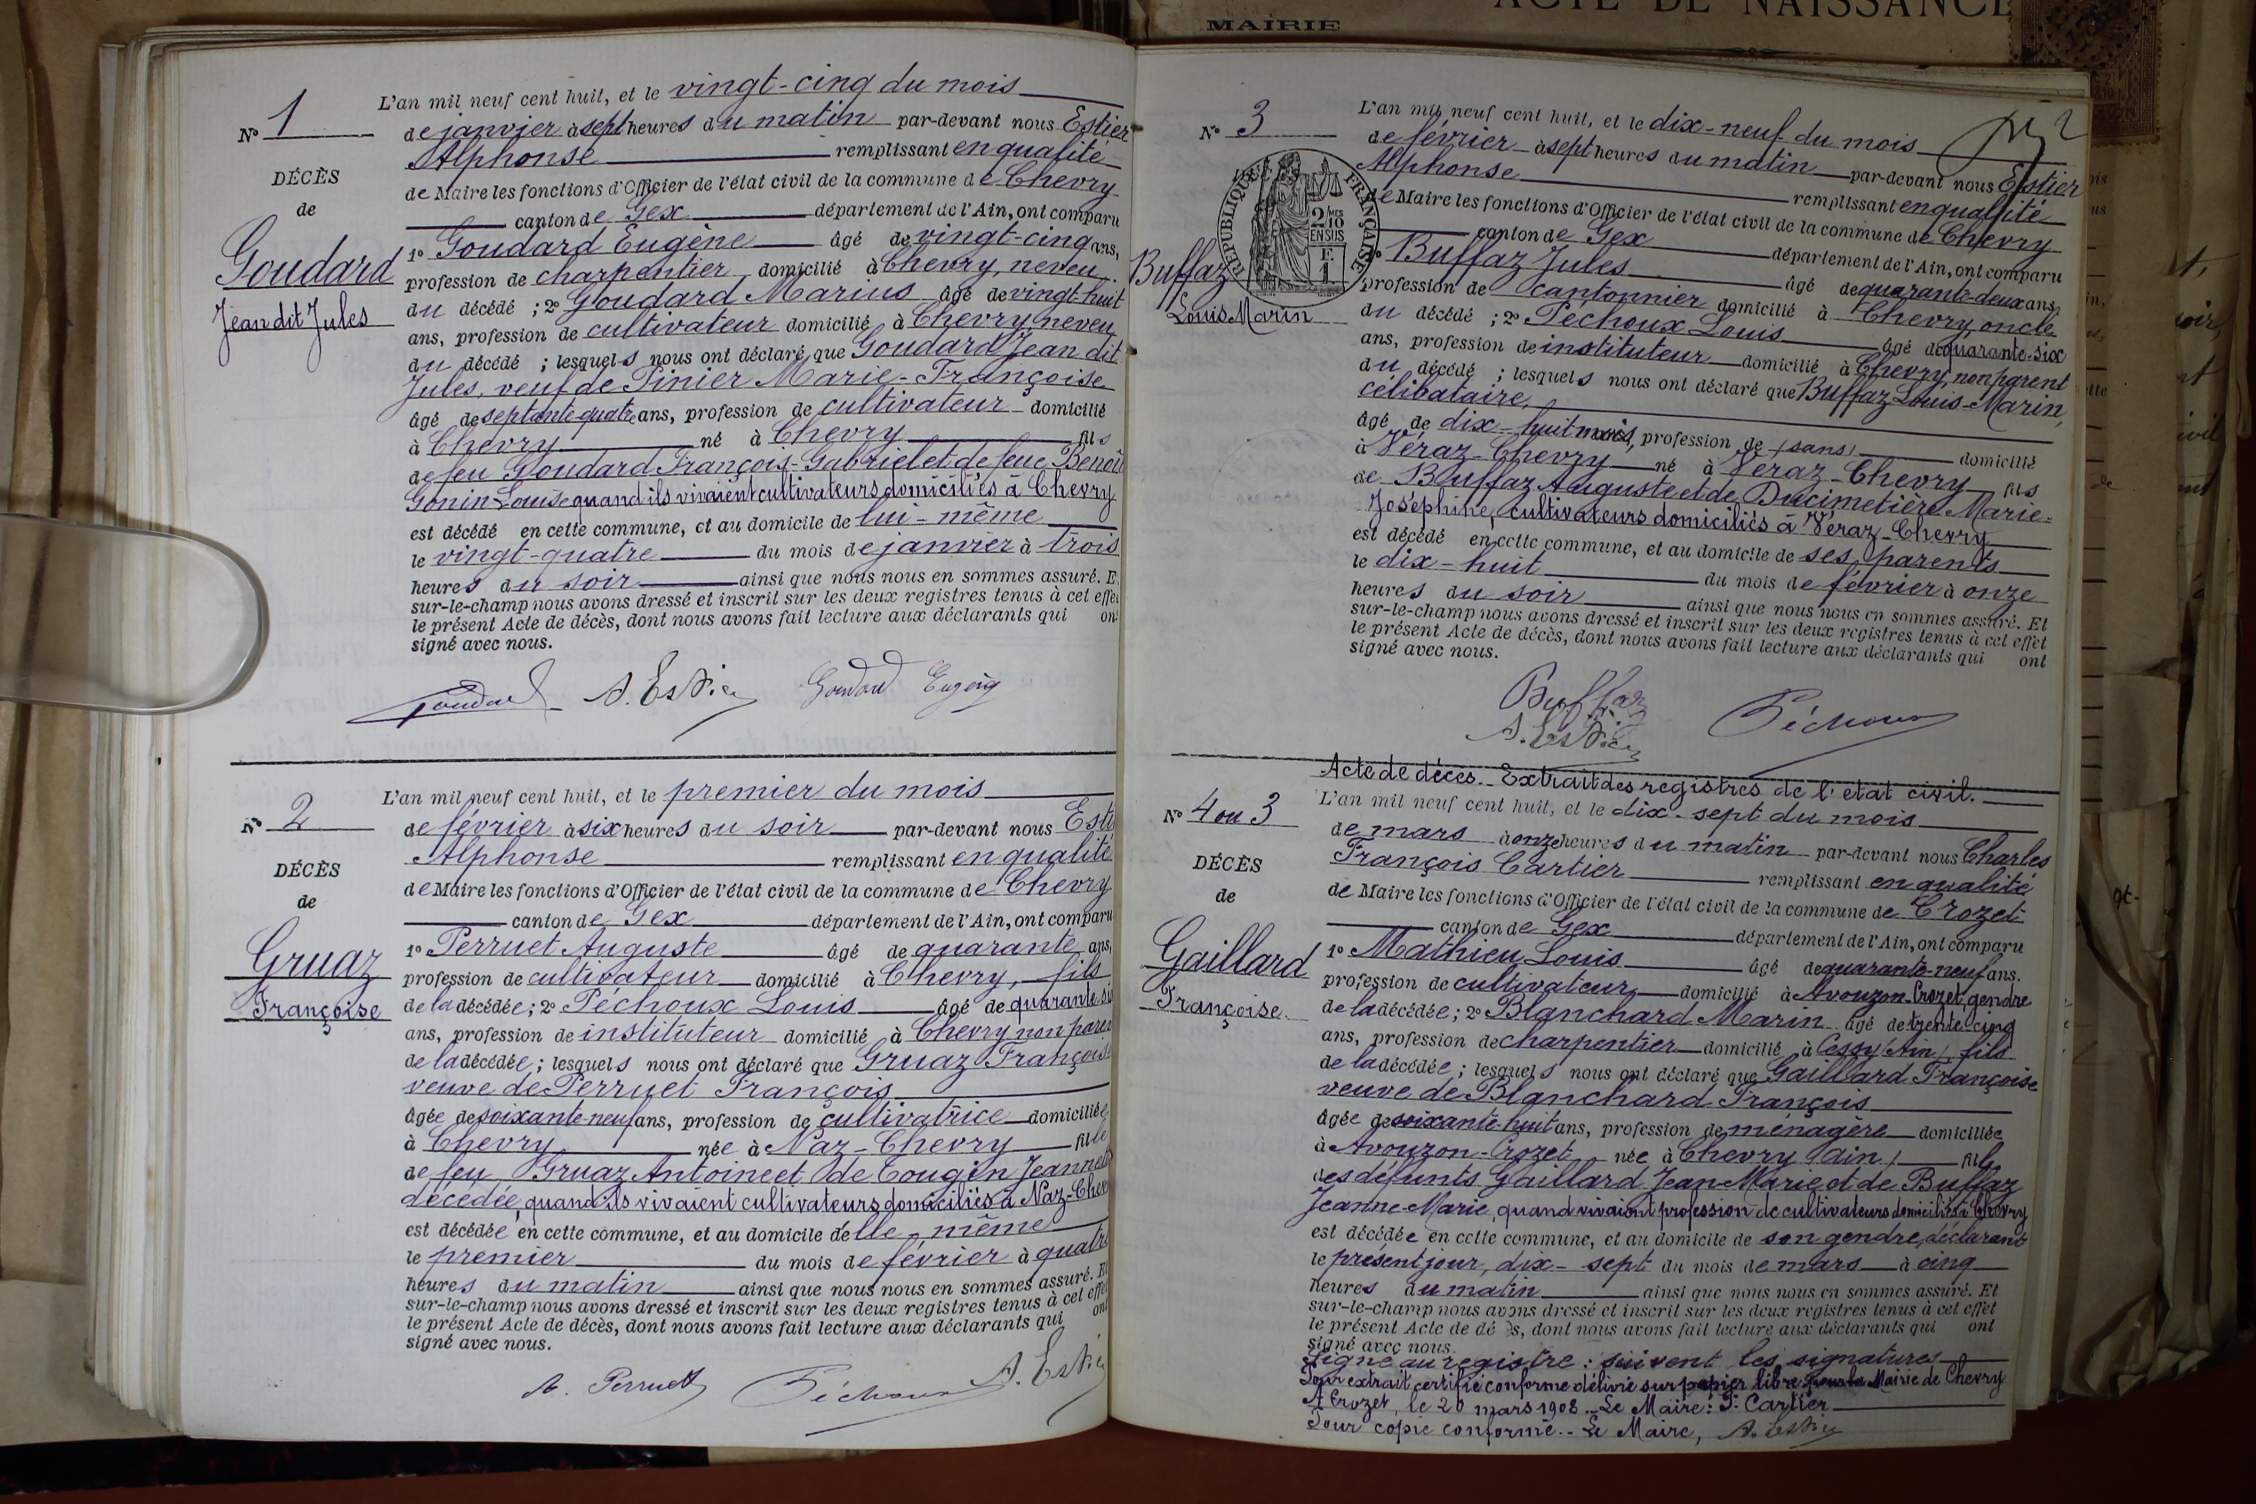 MAIRIE
ACTE DE NAISSANCE
L'an mil neuf cent huit, et le vingt-cinq du mois
N° 1
de janvier à sept heures du matin par-devant nous Estier
Alphonse remplissant en qualité
DÉCÈS
de Maire les fonctions d'Officier de l'état civil de la commune de Chevry
de
canton de Gex département de l'Ain, ont comparu
Goudard
1° Goudard Eugène âgé de vingt-cinq ans,
profession de charpentier domicilié à Chevry, neveu
Jean dit Jules
du décédé ; 2° Goudard Marius âgé de vingt-huit
ans, profession de cultivateur domicilié à Chevry, neveu
du décédé ; lesquels nous ont déclaré que Goudard Jean dit
Jules, veuf de Pinier Marie-Françoise
âgé de septante-quatre ans, profession de cultivateur domicilié
à Chevry né à Chevry fils
de feu Goudard François-Gabriel et de feue Benoît
Gonin Louise quand ils vivaient cultivateurs domiciliés à Chevry
est décédé en cette commune, et au domicile de lui-même
le vingt-quatre du mois de janvier à trois
heures du soir ainsi que nous nous en sommes assuré. E
sur-le-champ nous avons dressé et inscrit sur les deux registres tenus à cet effet
le présent Acte de décès, dont nous avons fait lecture aux déclarants qui on
signé avec nous.
Goudard A. Estier Goudard Eugène
L'an mil neuf cent huit, et le premier du mois
N° 2
de février à six heures du soir par-devant nous Esti
Alphonse remplissant en qualité
DÉCÈS
de Maire les fonctions d'Officier de l'état civil de la commune de Chevry
de
canton de Gex département de l'Ain, ont comparu
Gruaz
1° Perruet Auguste âgé de quarante ans,
profession de cultivateur domicilié à Chevry, fils
Françoise
de la décédée ; 2° Péchoux Louis âgé de quarante-si
ans, profession de instituteur domicilié à Chevry non paren
de la décédée ; lesquels nous ont déclaré que Gruaz Françoise
veuve de Perruet François
âgée de soixante-neuf ans, profession de cultivatrice domiciliée
à Chevry née à Naz-Chevry fille
de feu Gruaz Antoine et de Tougin Jeannett
décédée, quand ils vivaient cultivateurs domiciliés à Naz-Chev
est décédée en cette commune, et au domicile d'elle-même
le premier du mois de février à quatre
heures du matin ainsi que nous nous en sommes assuré. E
sur-le-champ nous avons dressé et inscrit sur les deux registres tenus à cet effet
le présent Acte de décès, dont nous avons fait lecture aux déclarants qui ont
signé avec nous.
A. Perruet Péchoux A. Estie
L'an mil neuf cent huit, et le dix-neuf du mois
N° 3
de février à sept heures du matin par-devant nous Estier
Alphonse remplissant en qualité
RÉPUBLIQUE FRANÇAISE
2/10 MES EN SUS
F. 1
de Maire les fonctions d'Officier de l'état civil de la commune de Chevry
canton de Gex département de l'Ain, ont comparu
Buffaz
Buffaz Jules âgé de quarante-deux ans,
profession de cantonnier domicilié à Chevry, oncle
Louis Marin
du décédé ; 2° Péchoux Louis âgé de quarante-six
ans, profession de instituteur domicilié à Chevry, non parent
du décédé ; lesquels nous ont déclaré que Buffaz Louis-Marin,
célibataire,
âgé de dix-huit mois, profession de (sans) domicilié
à Véraz-Chevry né à Véraz-Chevry fils
de Buffaz Auguste et de Ducimetière Marie-
Joséphine, cultivateurs domiciliés à Véraz-Chevry
est décédé en cette commune, et au domicile de ses parents
le dix-huit du mois de février à onze
heures du soir ainsi que nous nous en sommes assuré. Et
sur-le-champ nous avons dressé et inscrit sur les deux registres tenus à cet effet
le présent Acte de décès, dont nous avons fait lecture aux déclarants qui ont
signé avec nous.
Buffaz Péchoux
A. Estier
Acte de décès. Extrait des registres de l'état civil.
L'an mil neuf cent huit, et le dix-sept du mois
N° 4 ou 3
de mars à onze heures du matin par-devant nous Charles
François Cartier remplissant en qualité
DÉCÈS
de Maire les fonctions d'Officier de l'état civil de la commune de Crozet
de
canton de Gex département de l'Ain, ont comparu
Gaillard
1° Mathieu Louis âgé de quarante-neuf ans.
profession de cultivateur domicilié à Avouzon-Crozet, gendre
Françoise
de la décédée ; 2° Blanchard Marin âgé de trente-cinq
ans, profession de charpentier domicilié à Cessy (Ain), fils
de la décédée ; lesquels nous ont déclaré que Gaillard Françoise
veuve de Blanchard François
âgée de soixante-huit ans, profession de ménagère domiciliée
à Avouzon-Crozet née à Chevry (ain) fille
des défunts Gaillard Jean Marie et de Buffaz
Jeanne-Marie, quand vivaient profession de cultivateurs domiciliés à Chevry
est décédée en cette commune, et au domicile de son gendre, déclarant
le présent jour, dix-sept du mois de mars à cinq
heures du matin ainsi que nous nous en sommes assuré. Et
sur-le-champ nous avons dressé et inscrit sur les deux registres tenus à cet effet
le présent Acte de dé s, dont nous avons fait lecture aux déclarants qui ont
signé avec nous.
Signé au registre : suivent les signatures
Pour extrait certifié conforme délivré sur papier libre pour la Mairie de Chevry
A Crozet, le 20 mars 1908. Le Maire : F. Cartier
Pour copie conforme. Le Maire, A. Estier